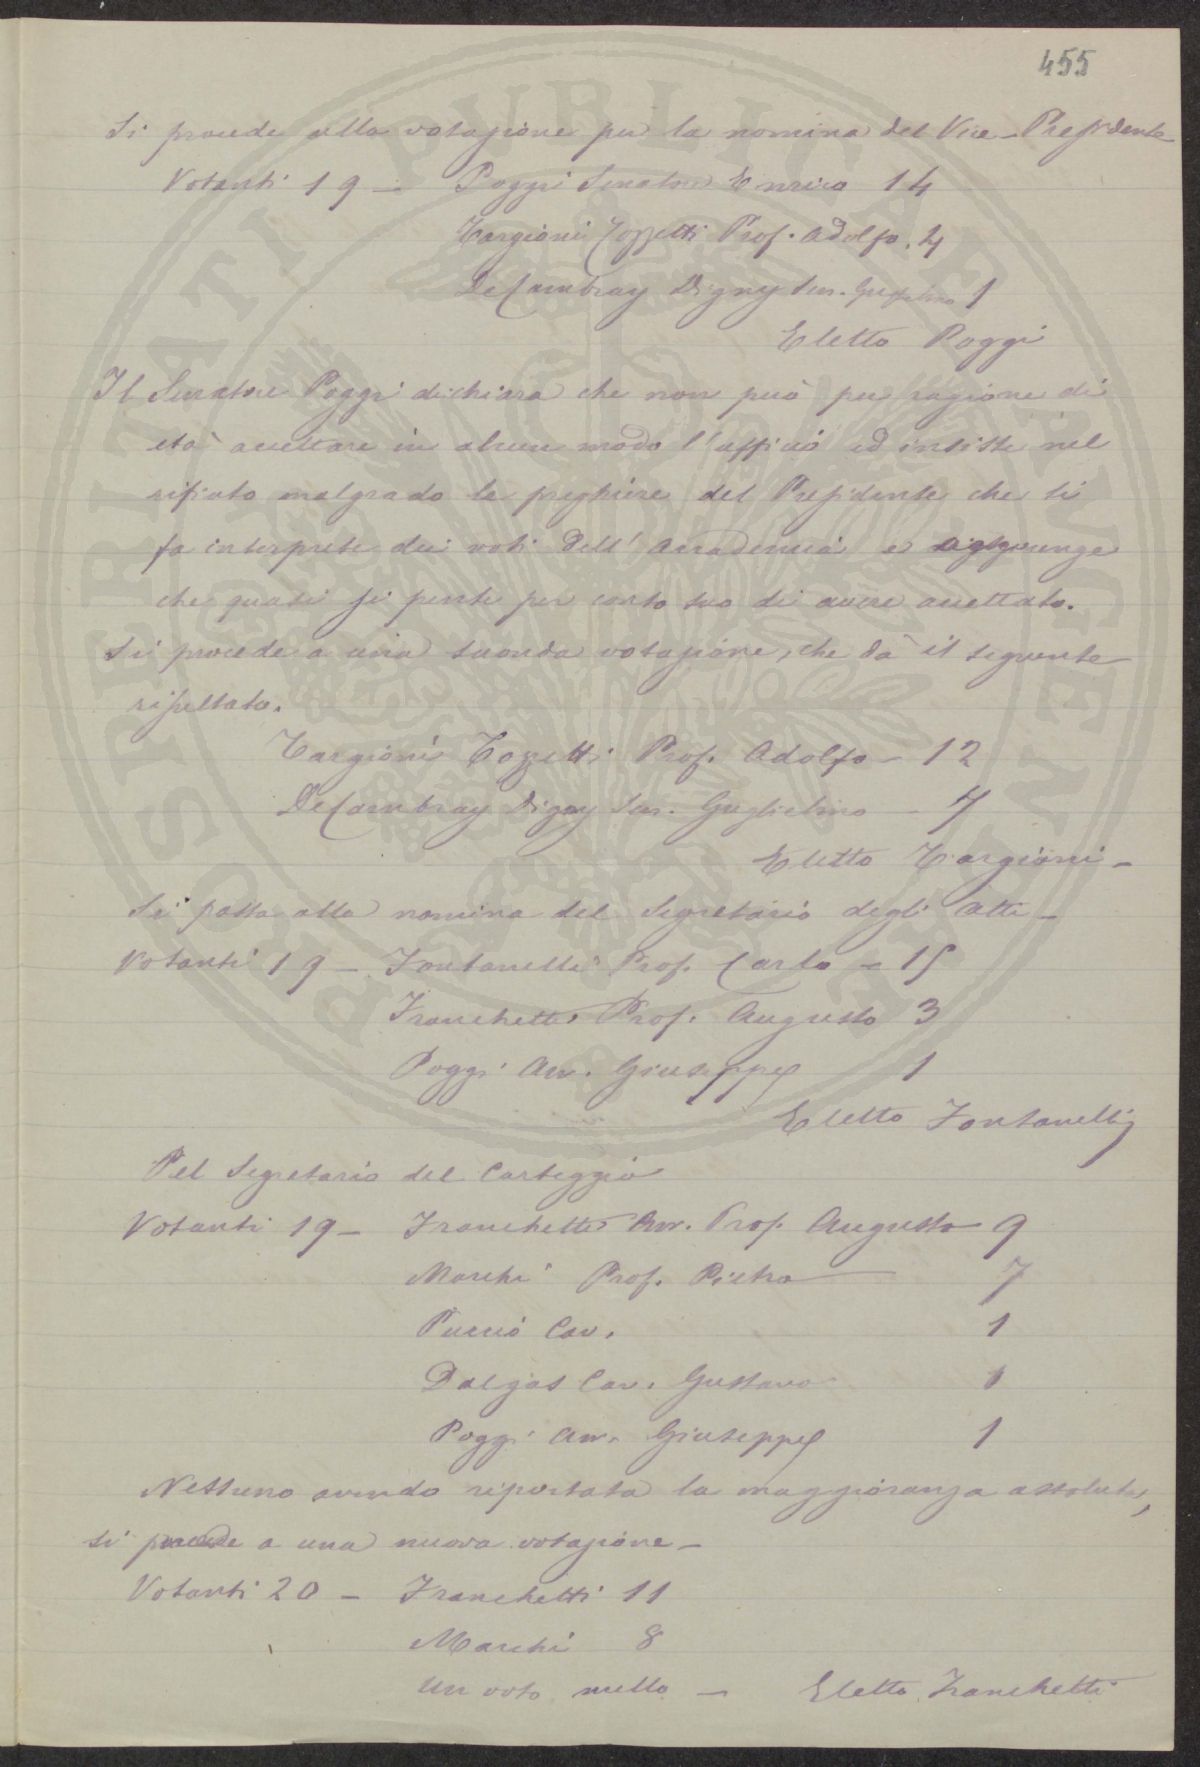 455
Si procede alla votazione per la nomina del Vice-Presidente
Votanti 19 — Poggi Senatore Enrico 14
Targioni Tozzetti Prof. Adolfo. 4
De Cambray Digny Sen. Guglielmo 1
Eletto Poggi
Il Senatore Poggi dichiara che non può per ragione di
età accettare in alcun modo l'ufficio ed insiste nel
rifiuto malgrado le preghiere del Presidente che si
fa interprete dei voti dell'Accademia e aggiunge
che quasi si pente per conto suo di avere accettato.
Si procede a una seconda votazione, che dà il seguente
risultato.
Targioni Tozzetti Prof. Adolfo — 12
De Cambray Digny Sen. Guglielmo — 7
Eletto Targioni —
Si passa alla nomina del Segretario degli Atti —
Votanti 19 — Fontanelli Prof. Carlo — 15
Franchetti Prof. Augusto 3
Poggi Avv. Giuseppe 1
Eletto Fontanelli
Pel Segretario del Carteggio
Votanti 19 — Franchetti Avv. Prof. Augusto 9
Marchi Prof. Pietro 7
Puccio Cav. 1
Dalgas Cav. Gustavo 1
Poggi Avv. Giuseppe 1
Nessuno avendo riportata la maggioranza assoluta,
si procede a una nuova votazione —
Votanti 20 — Franchetti 11
Marchi 8
Un voto nullo — Eletto Franchetti
PROSPERITATI PUBLICAE AUGENDAE